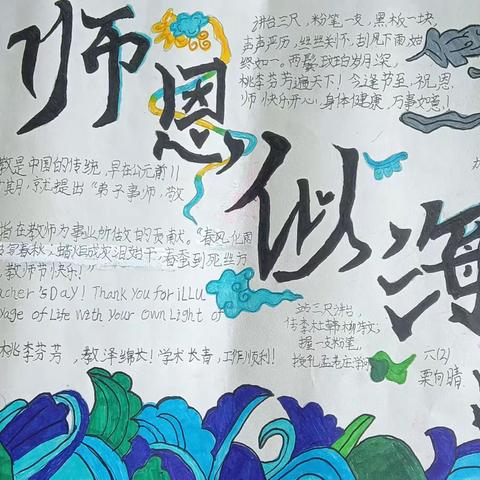 师恩似海
讲台三尺，粉笔一支，黑板一块，
声声严厉，丝丝关怀，刮风下雨，始
终如一。两鬓斑白岁月深，
桃李芬芳遍天下！今逢节至，祝恩
师快乐开心，身体健康，万事如意！
教是中国的传统，早在公元前11
期，就提出“弟子事师，敬
在教师为事业所做的贡献。“春风化雨
春秋，蜡炬成灰泪始干，春蚕到死丝方
，教师节快乐！”
acher's DAY! Thank You for iLLU
yage of Life with your own Light of
桃李芬芳，教泽绵长！学术长青，工作顺利！
站三尺讲台，
握一支粉笔，
六(2)
栗向晴